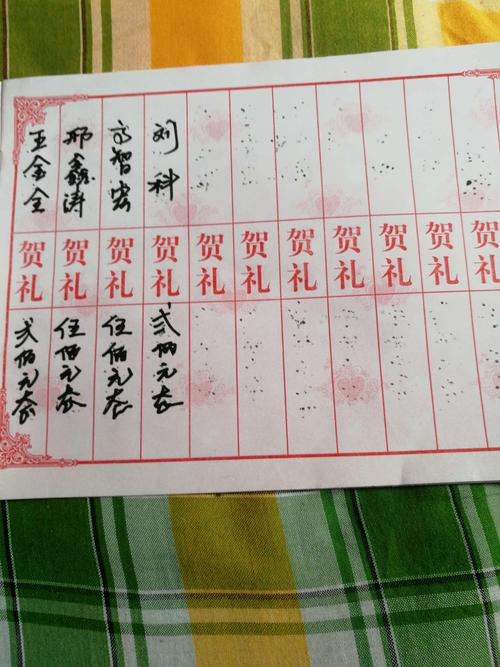 王金全
贺礼
贰佰元整
邢鑫涛
贺礼
伍佰元整
高智宏
贺礼
伍佰元整
刘科
贺礼
贰佰元整
贺礼
贺礼
贺礼
贺礼
贺礼
贺礼
贺礼